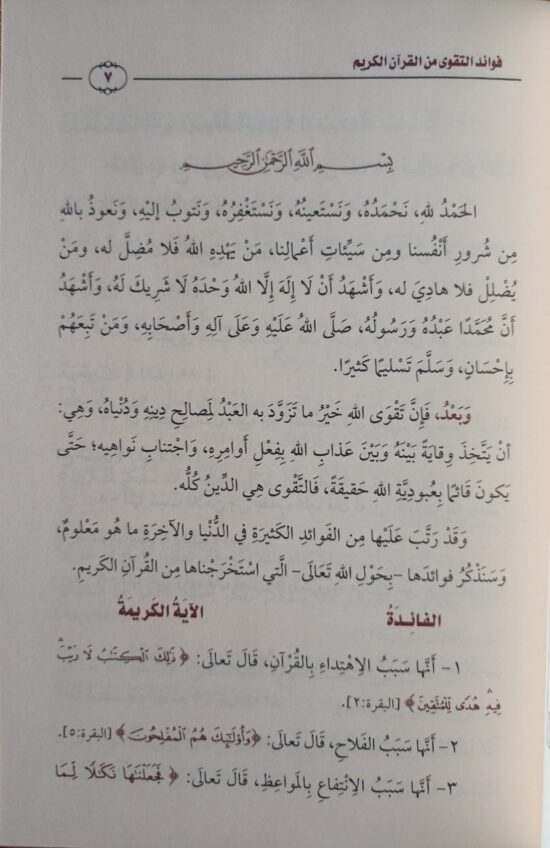 فوائد التقوى من القرآن الكريم
٧
بِسْمِ اللَّهِ الرَّحْمَٰنِ الرَّحِيمِ
الحَمْدُ للهِ، نَحْمَدُهُ، وَنَسْتَعينُهُ، وَنَسْتَغْفِرُهُ، وَنَتوبُ إليْهِ، وَنَعوذُ باللهِ
مِن شُرورِ أَنْفُسنا ومِن سَيِّئاتِ أَعْمالِنا، مَنْ يَهْدِهِ اللهُ فَلا مُضِلَّ له، ومَنْ
يُضْلِلْ فلا هادِيَ له، وَأَشْهَدُ أَنْ لَا إِلَهَ إِلَّا اللهُ وَحْدَهُ لَا شَرِيكَ لَهُ، وَأَشْهَدُ
أَنَّ مُحَمَّدًا عَبْدُهُ وَرَسُولُهُ، صَلَّى اللهُ عَلَيْهِ وَعَلَى آلِهِ وَأَصْحَابِهِ، وَمَنْ تَبِعَهُمْ
بِإِحْسَانٍ، وَسَلَّمَ تَسْليمًا كَثيرًا.
وَبَعْدُ، فَإِنَّ تَقْوَى اللهِ خَيْرُ ما تَزَوَّدَ به العَبْدُ لِصالِحِ دِينِهِ وَدُنْياهُ، وَهِيَ:
أنْ يَتَّخِذَ وِقايَةً بَيْنَهُ وَبَيْنَ عَذابِ اللهِ بِفِعْلِ أوامِرِهِ، وَاجْتنابِ نَواهِيه؛ حَتَّى
يَكونَ قَائمًا بِعُبودِيَّةِ اللهِ حَقيقَةً، فَالتَّقْوى هِي الدِّينُ كُلُّه.
وَقَدْ رَتَّبَ عَلَيْها مِن الفَوائدِ الكَثيرَةِ في الدُّنْيا والآخِرَةِ ما هُو مَعْلومٌ،
وَسَنَذْكُرُ فوائدَها -بِحَوْلِ اللهِ تَعَالَى- الَّتي اسْتَخْرَجْناها مِن القُرآنِ الكَريمِ.
الفائِدَةُ الآيَةُ الكَريمَةُ
١- أَنَّها سَبَبُ الاِهْتِداءِ بِالقُرْآنِ، قَالَ تَعَالَى: ﴿ذَٰلِكَ الْكِتَٰبُ لَا رَيْبَ ۛ
فِيهِ ۛ هُدًى لِّلْمُتَّقِينَ﴾ [البقرة:٢].
٢- أَنَّها سَبَبُ الفَلاحِ، قَالَ تَعَالَى: ﴿وَأُولَٰئِكَ هُمُ الْمُفْلِحُونَ﴾ [البقرة:٥].
٣- أَنَّها سَبَبُ الاِنْتِفاعِ بِالمَواعِظِ، قَالَ تَعَالَى: ﴿فَجَعَلْنَٰهَا نَكَٰلًا لِّمَا